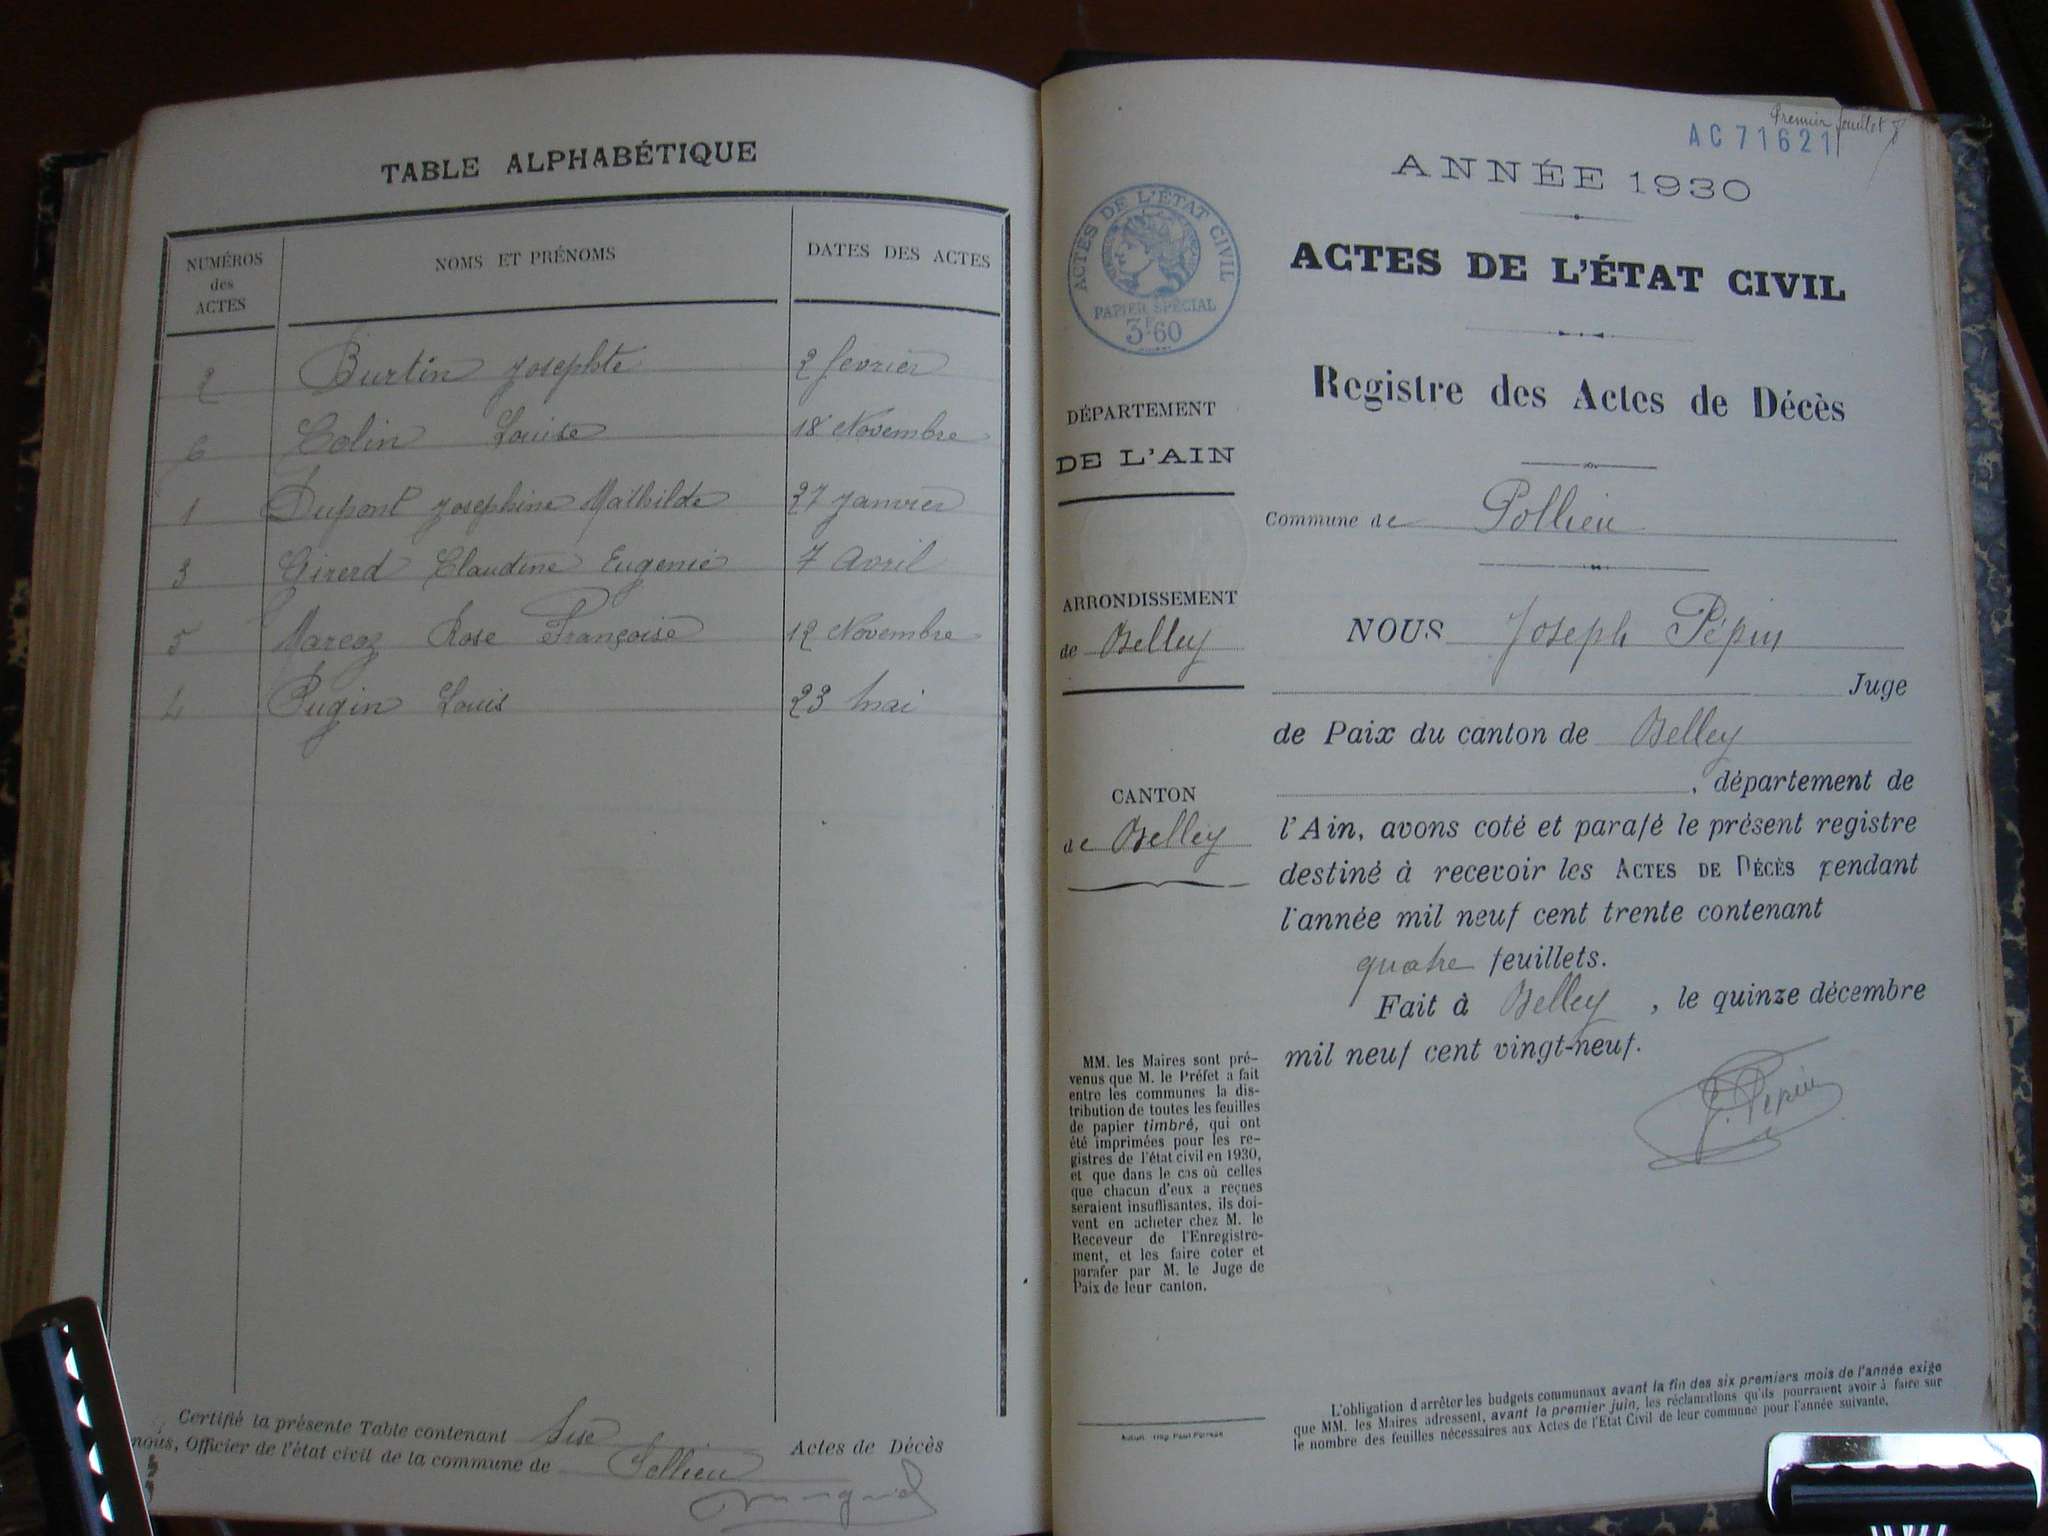 TABLE ALPHABÉTIQUE
NUMÉROS
des
ACTES
NOMS ET PRÉNOMS
DATES DES ACTES
2 Burtin Josephte 2 fevrier
6 Colin Louise 18 Novembre
1 Dupont Josephine Mathilde 27 Janvier
3 Girerd Claudine Eugenie 7 Avril
5 Marcoz Rose Françoise 12 Novembre
4 Pugin Louis 23 Mai
Certifié la présente Table contenant Six Actes de Décès
nous, Officier de l'état civil de la commune de Pollieu
Premier feuillet
AC 71621
ANNÉE 1930
ACTES DE L'ÉTAT CIVIL
PAPIER SPÉCIAL
3F60
ACTES DE L'ÉTAT CIVIL
Registre des Actes de Décès
DÉPARTEMENT
DE L'AIN
Commune de Pollieu
ARRONDISSEMENT
de Belley
CANTON
de Belley
NOUS Joseph Pépin
Juge
de Paix du canton de Belley
, département de
l'Ain, avons coté et parafé le présent registre
destiné à recevoir les ACTES DE DÉCÈS pendant
l'année mil neuf cent trente contenant
quatre feuillets.
Fait à Belley, le quinze décembre
mil neuf cent vingt-neuf.
J. Pépin
MM. les Maires sont pré-
venus que M. le Préfet a fait
entre les communes la dis-
tribution de toutes les feuilles
de papier timbré, qui ont
été imprimées pour les re-
gistres de l'état civil en 1930,
et que dans le cas où celles
que chacun d'eux a reçues
seraient insuffisantes, ils doi-
vent en acheter chez M. le
Receveur de l'Enregistre-
ment, et les faire coter et
parafer par M. le Juge de
Paix de leur canton.
L'obligation d'arrêter les budgets communaux avant la fin des six premiers mois de l'année exige
que MM. les Maires adressent, avant le premier juin, les réclamations qu'ils pourraient avoir à faire sur
le nombre des feuilles nécessaires aux Actes de l'Etat Civil de leur commune pour l'année suivante.